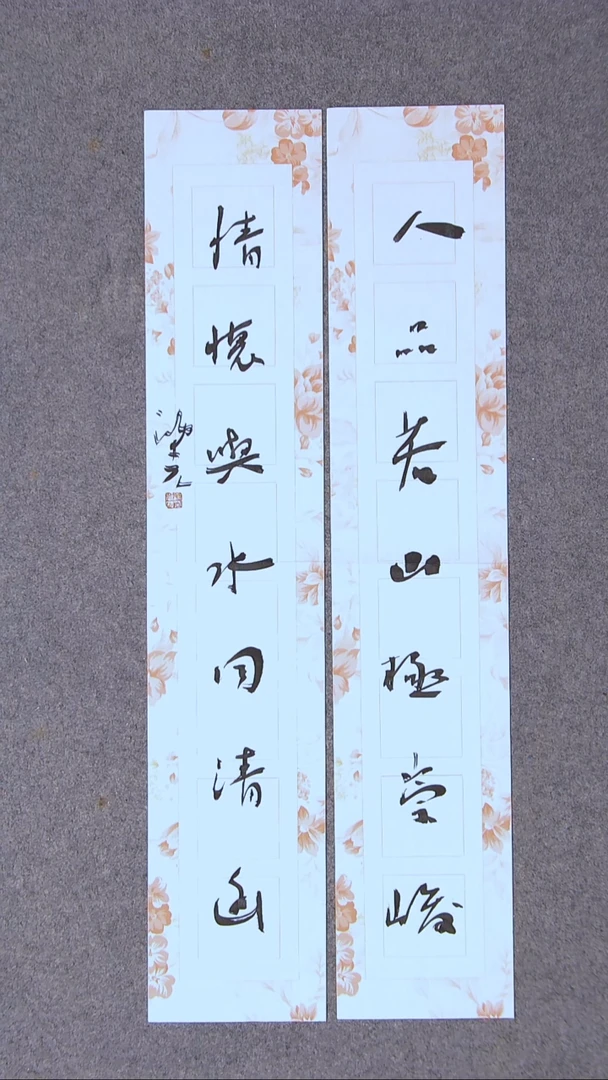 人品若山極崇峻
情懷與水同清幽